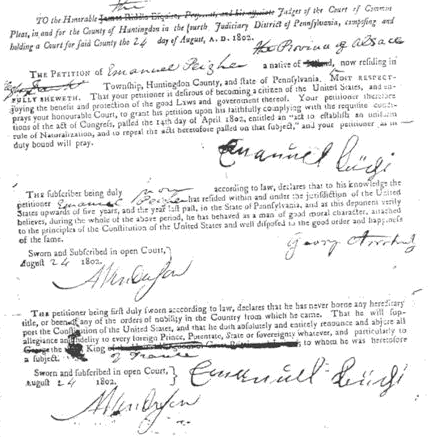 the
TO the Honorable James Riddle Esquire, President, and his associate Judges of the Court of Common
Pleas, in and for the County of Huntingdon in the fourth Judiciary District of Pennsylvania, composing and
holding a Court for said County the 24 day of August, A. D. 1802.
the Province of Alsace
THE PETITION of Emanuel a native of now residing in
Township, Huntingdon County, and state of Pennsylvania. MOST RESPECT-
FULLY SHEWETH. That your petitioner is desirous of becoming a citizen of the United States, and en-
joying the benefit and protection of the good Laws and government thereof. Your petitioner therefore
prays your honourable Court, to grant his petition upon his faithfully complying with the requisite condi-
tions of the act of Congress, passed the 14th day of April 1802, entitled an "act to establish an uniform
rule of Naturalization, and to repeal the acts heretofore passed on that subject," and your petitioner as in
duty bound will pray.
Emanuel
THE subscriber being duly sworn according to law, declares that to his knowledge the
petitioner Emanuel has resided within and under the jurisdiction of the United
States upwards of five years, and the year last past, in the State of Pennsylvania, and as this deponent verily
believes, during the whole of the above period, he has behaved as a man of good moral character, attached
to the principles of the Constitution of the United States and well disposed to the good order and happiness
of the same.
George
Sworn and Subscribed in open Court,
August 24 1802.
A Anderson
THE petitioner being first duly sworn according to law, declares that he has never borne any hereditary
title, or been of any of the orders of nobility in the Country from which he came. That he will sup-
port the Constitution of the United States, and that he doth absolutely and entirely renounce and abjure all
allegiance and fidelity to every foreign Prince, Potentate, State or sovereignty whatever, and particularly to
George the King to whom he was heretofore
a subject. of France
Sworn and subscribed in open Court,
August 24 1802.
Emanuel
A Anderson